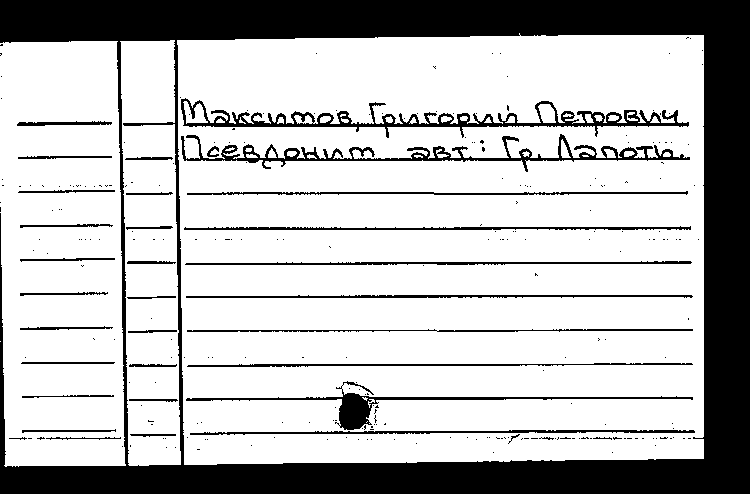 Максимов, Григорий Петрович
Псевдоним авт.: Гр. Лапоть.